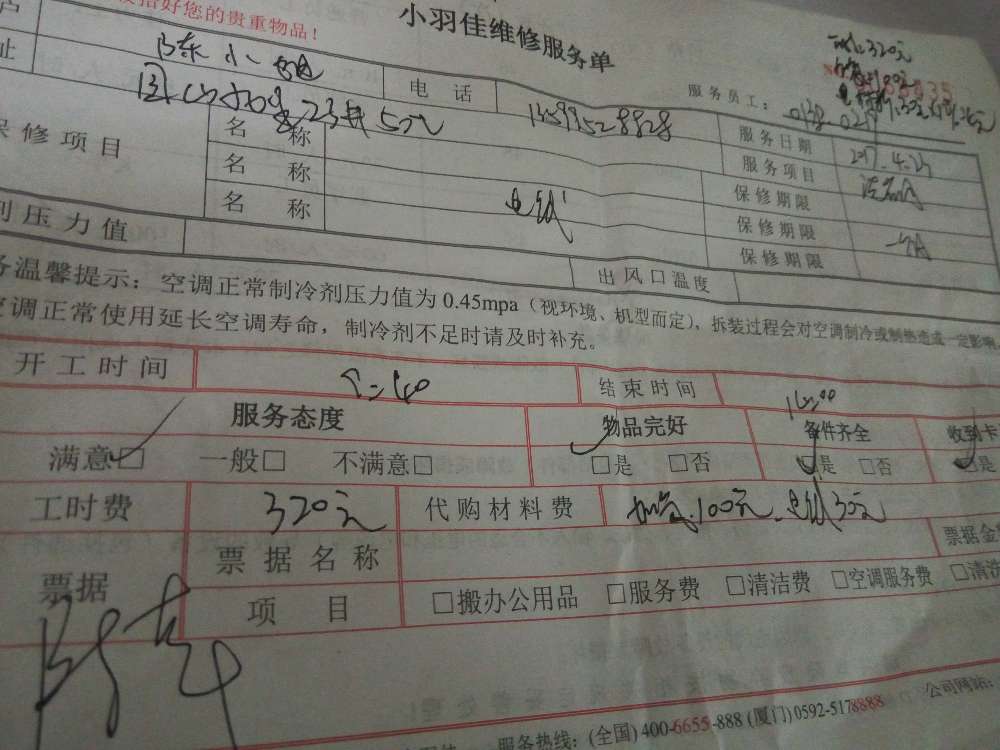 好您的贵重物品！
小羽佳维修服务单
320元
户 陈小姐 电话 服务员工：
址 服务日期 2017.4.
保修项目 名称 服务项目
名称 保修期限
名称 保修期限
保修期限
压力值 出风口温度
务温馨提示：空调正常制冷剂压力值为0.45mpa（视环境、机型而定），拆装过程会对空调制冷或制热造成一定影响，
空调正常使用延长空调寿命，制冷剂不足时请及时补充。
开工时间 结束时间
服务态度 物品完好 备件齐全 收到卡
满意□ 一般□ 不满意□ □是 □否 □是 □否 □是
工时费 320元 代购材料费 加氟100元、电线30元
票据 票据名称 票据金
项目 □搬办公用品 □服务费 □清洁费 □空调服务费 □清洗
服务热线：(全国) 400-6655-888 (厦门) 0592-5178888 公司网站：